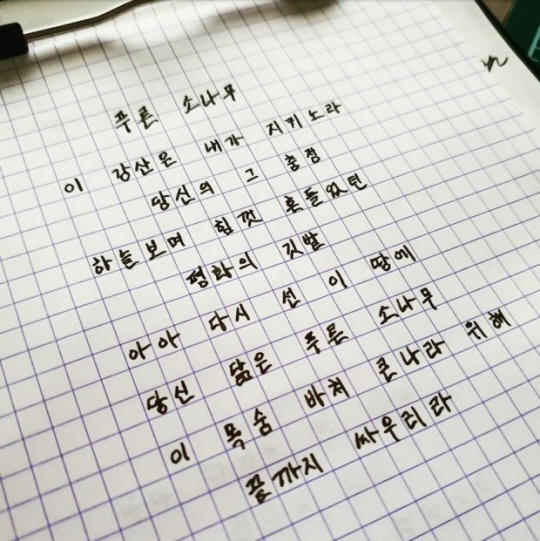 푸른 소나무
이 강산은 내가 지키노라
당신의 그 충정
하늘보며 힘껏 흔들었던
평화의 깃발
아아 다시 선 이 땅에
당신 닮은 푸른 소나무
이 목숨 바쳐 큰나라 위해
끝까지 싸우리라